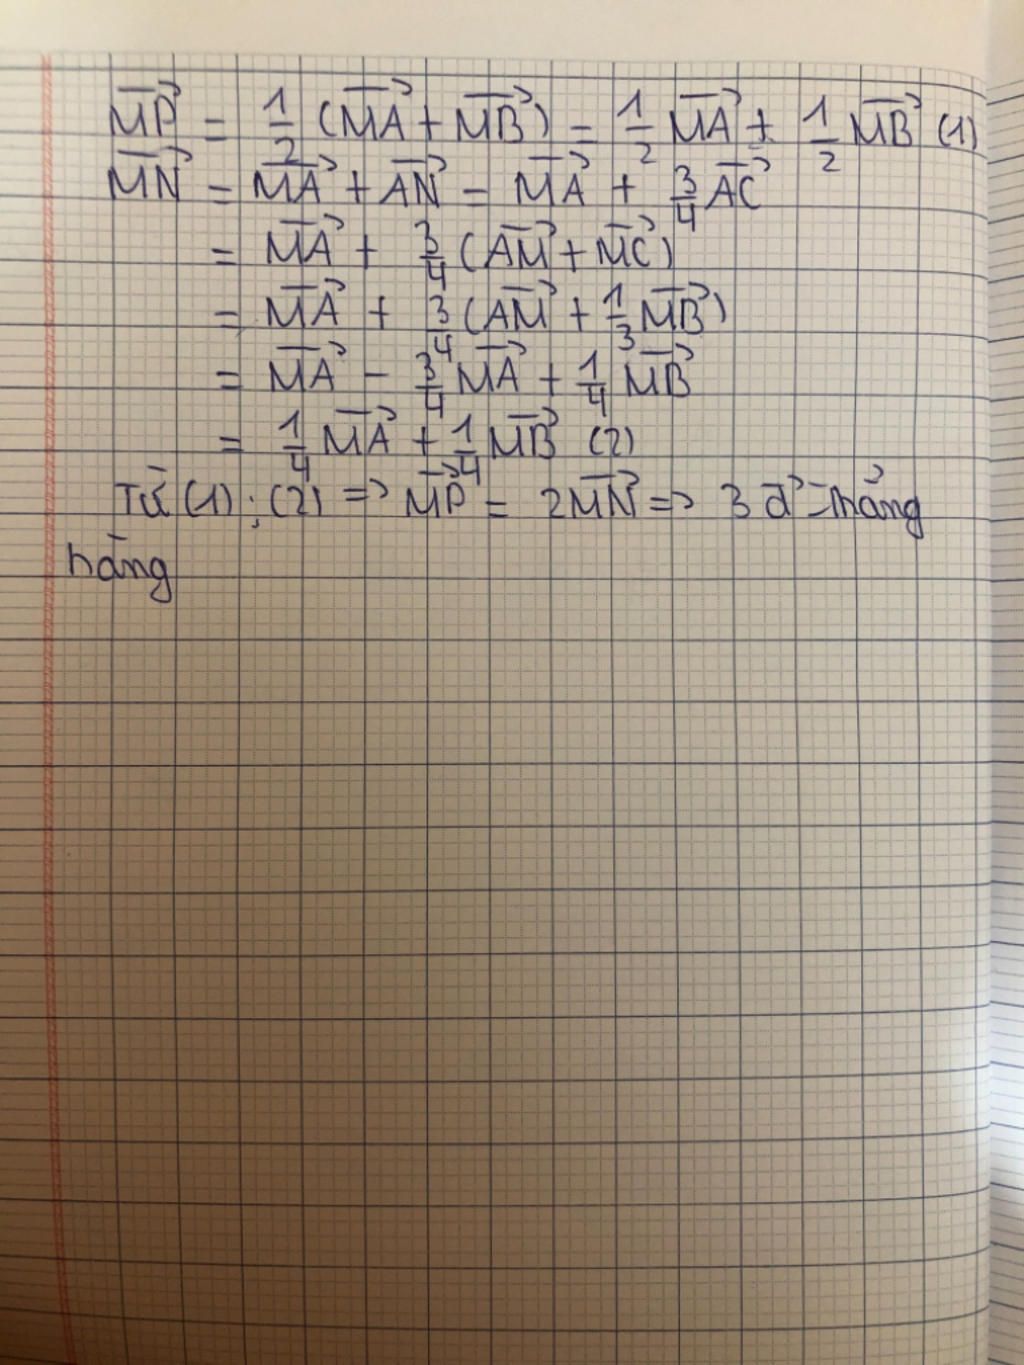 $\overrightarrow{MP} = \frac{1}{2} (\overrightarrow{MA} + \overrightarrow{MB}) = \frac{1}{2} \overrightarrow{MA} + \frac{1}{2} \overrightarrow{MB}$ (1)
$\overrightarrow{MN} = \overrightarrow{MA} + \overrightarrow{AN} = \overrightarrow{MA} + \frac{3}{4} \overrightarrow{AC}$
$= \overrightarrow{MA} + \frac{3}{4} (\overrightarrow{AM} + \overrightarrow{MC})$
$= \overrightarrow{MA} + \frac{3}{4} (\overrightarrow{AM} + \frac{1}{3} \overrightarrow{MB})$
$= \overrightarrow{MA} - \frac{3}{4} \overrightarrow{MA} + \frac{1}{4} \overrightarrow{MB}$
$= \frac{1}{4} \overrightarrow{MA} + \frac{1}{4} \overrightarrow{MB}$ (2)
Từ (1); (2) => $\overrightarrow{MP} = 2\overrightarrow{MN}$ => 3 đ' thẳng
hàng